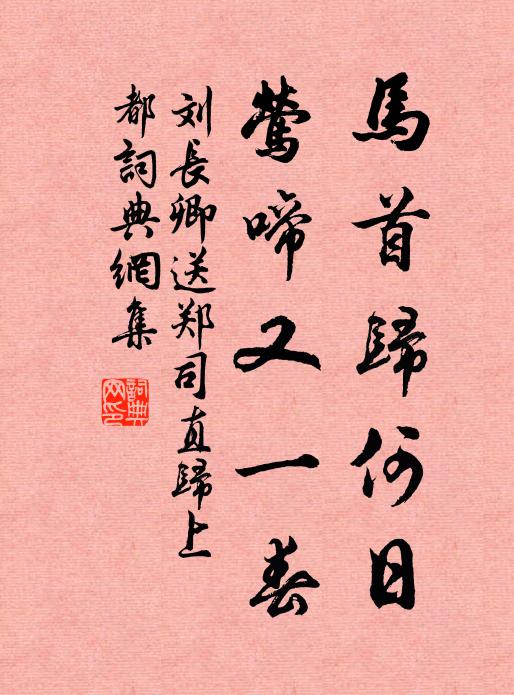 馬首歸何日
鶯啼又一春
刘長卿送郑司直歸上
都詞典網集
詞典
网印